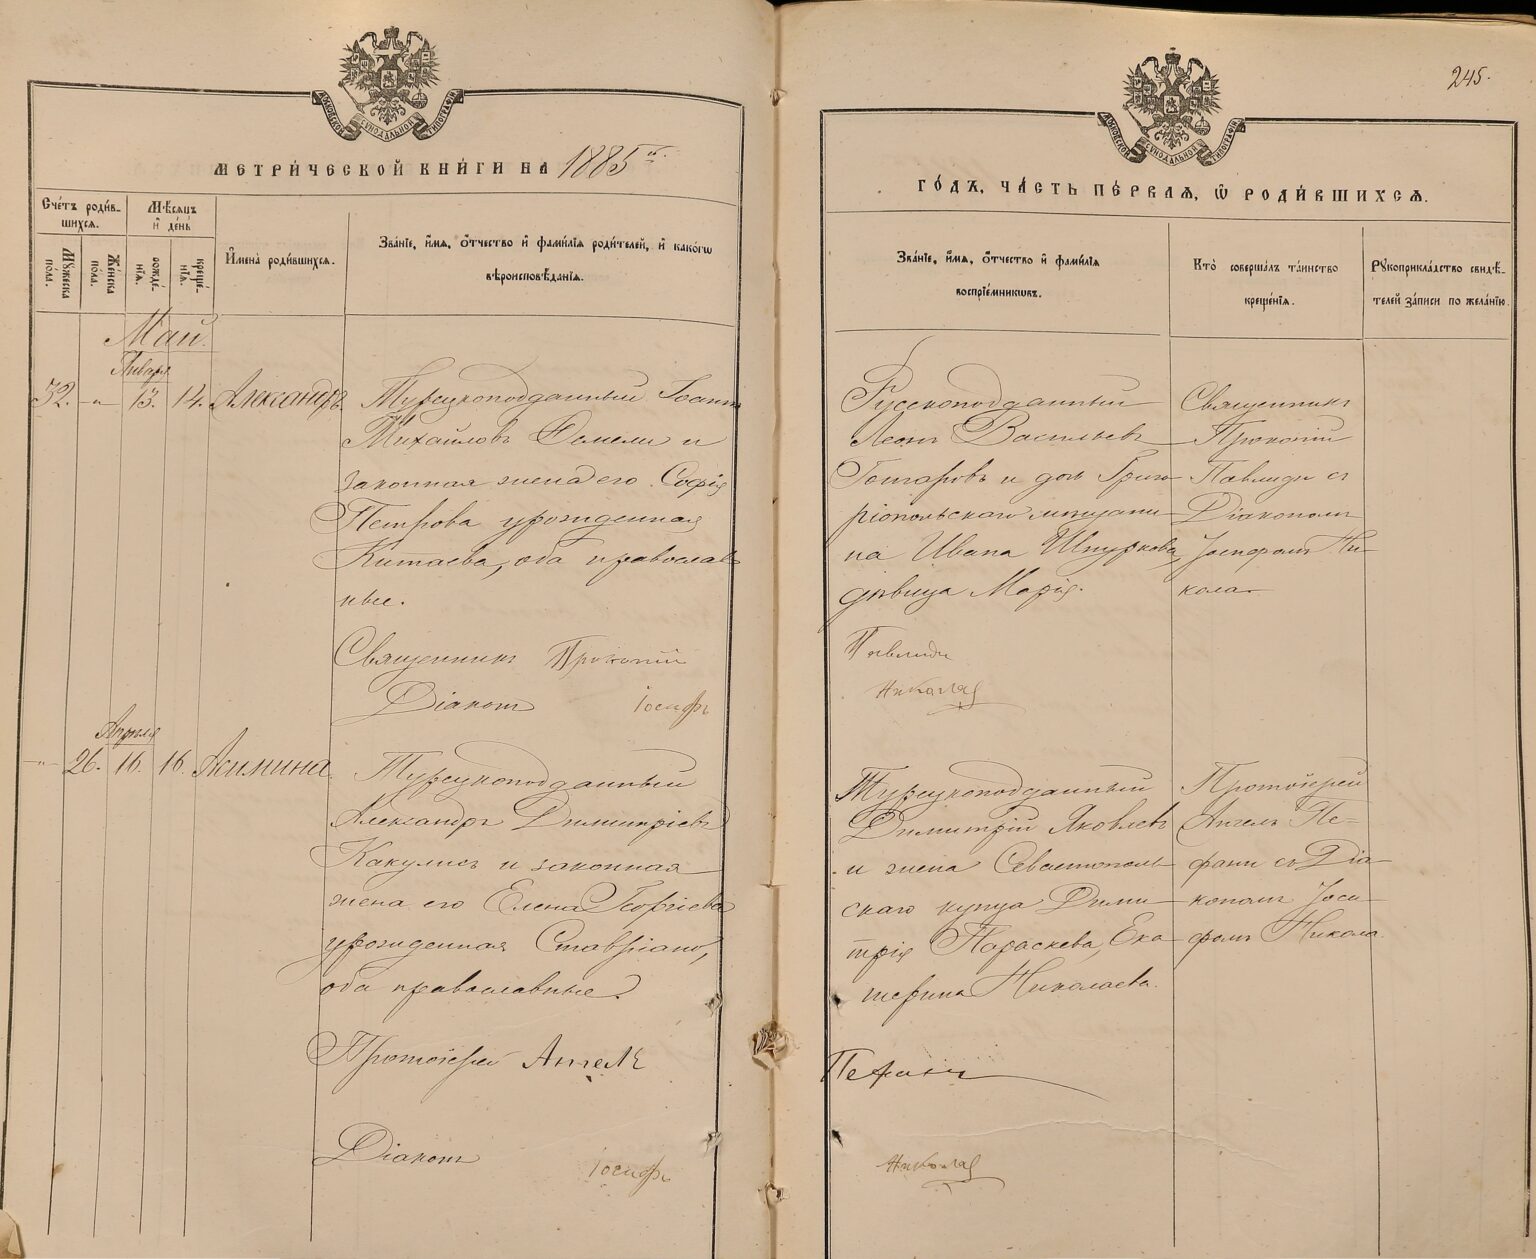 МОСКОВСКОЙ СѴНОДАЛЬНОЙ ТИПОГРАФІИ
МЕТРИ́ЧЕСКОЙ КНИ́ГИ НА 1885й.
Сче́тъ роди́в-
шихсѧ.
Мѣ́сѧцъ
и҆ де́нь
Мꙋ́жеска
по́ла.
Же́нска
по́ла.
рожде́-
нїѧ.
креще́-
нїѧ.
И҆мена̀ роди́вшихсѧ.
Зва́нїе, и҆́мѧ, ѻ҆́тчество и҆ фами́лїѧ роди́телей, и҆ како́гѡ
вѣроисповѣ́данїѧ.
Май.
Января
32. -"- 13. 14. Александръ.
Турецкоподданный Іоаннъ
Михайловъ и
законная жена его Софія
Петрова урожденная
Китаева, оба православ
ные.
Священникъ Прокопій
Діаконъ Іосифъ
Апрѣля
-"- 26. 16. 16. Акилина
Турецкоподданный
Александръ Димитріевъ
Какулисъ и законная
жена его Елена Георгіева
урожденная Ставріано,
оба православные.
Протоіерей Ангелъ
Діаконъ Іосифъ
245.
МОСКОВСКОЙ СѴНОДАЛЬНОЙ ТИПОГРАФІИ
ГО́ДЪ, ЧА́СТЬ ПЕ́РВАѦ, Ѡ҆ РОДИ́ВШИХСѦ.
Зва́нїе, и҆́мѧ, ѻ҆́тчество и҆ фами́лїѧ
воспрїе́мникѡвъ.
Кто̀ соверша́лъ та́инство
креще́нїѧ.
Рꙋкоприкла́дство свидѣ́-
телей за́писи по жела́нїю.
Русскоподданный
Леонъ Васильевъ
Гончаровъ и дочь Григо-
ріопольскаго мѣщани-
на Ивана Шпуркова,
дѣвица Марія.
Священникъ
Прокопій
Павлиди съ
Діакономъ
Іосифомъ Ни-
кола
Павлиди
Николай
Турецкоподданный
Димитрій Яковлевъ
и жена Севастополь-
скаго купца Дими-
трія Параскева, Ека-
терина Николаева.
Протоіерей
Ангелъ Пе-
фани съ Діа-
кономъ Іоси-
фомъ Никола.
Пефани
Николай